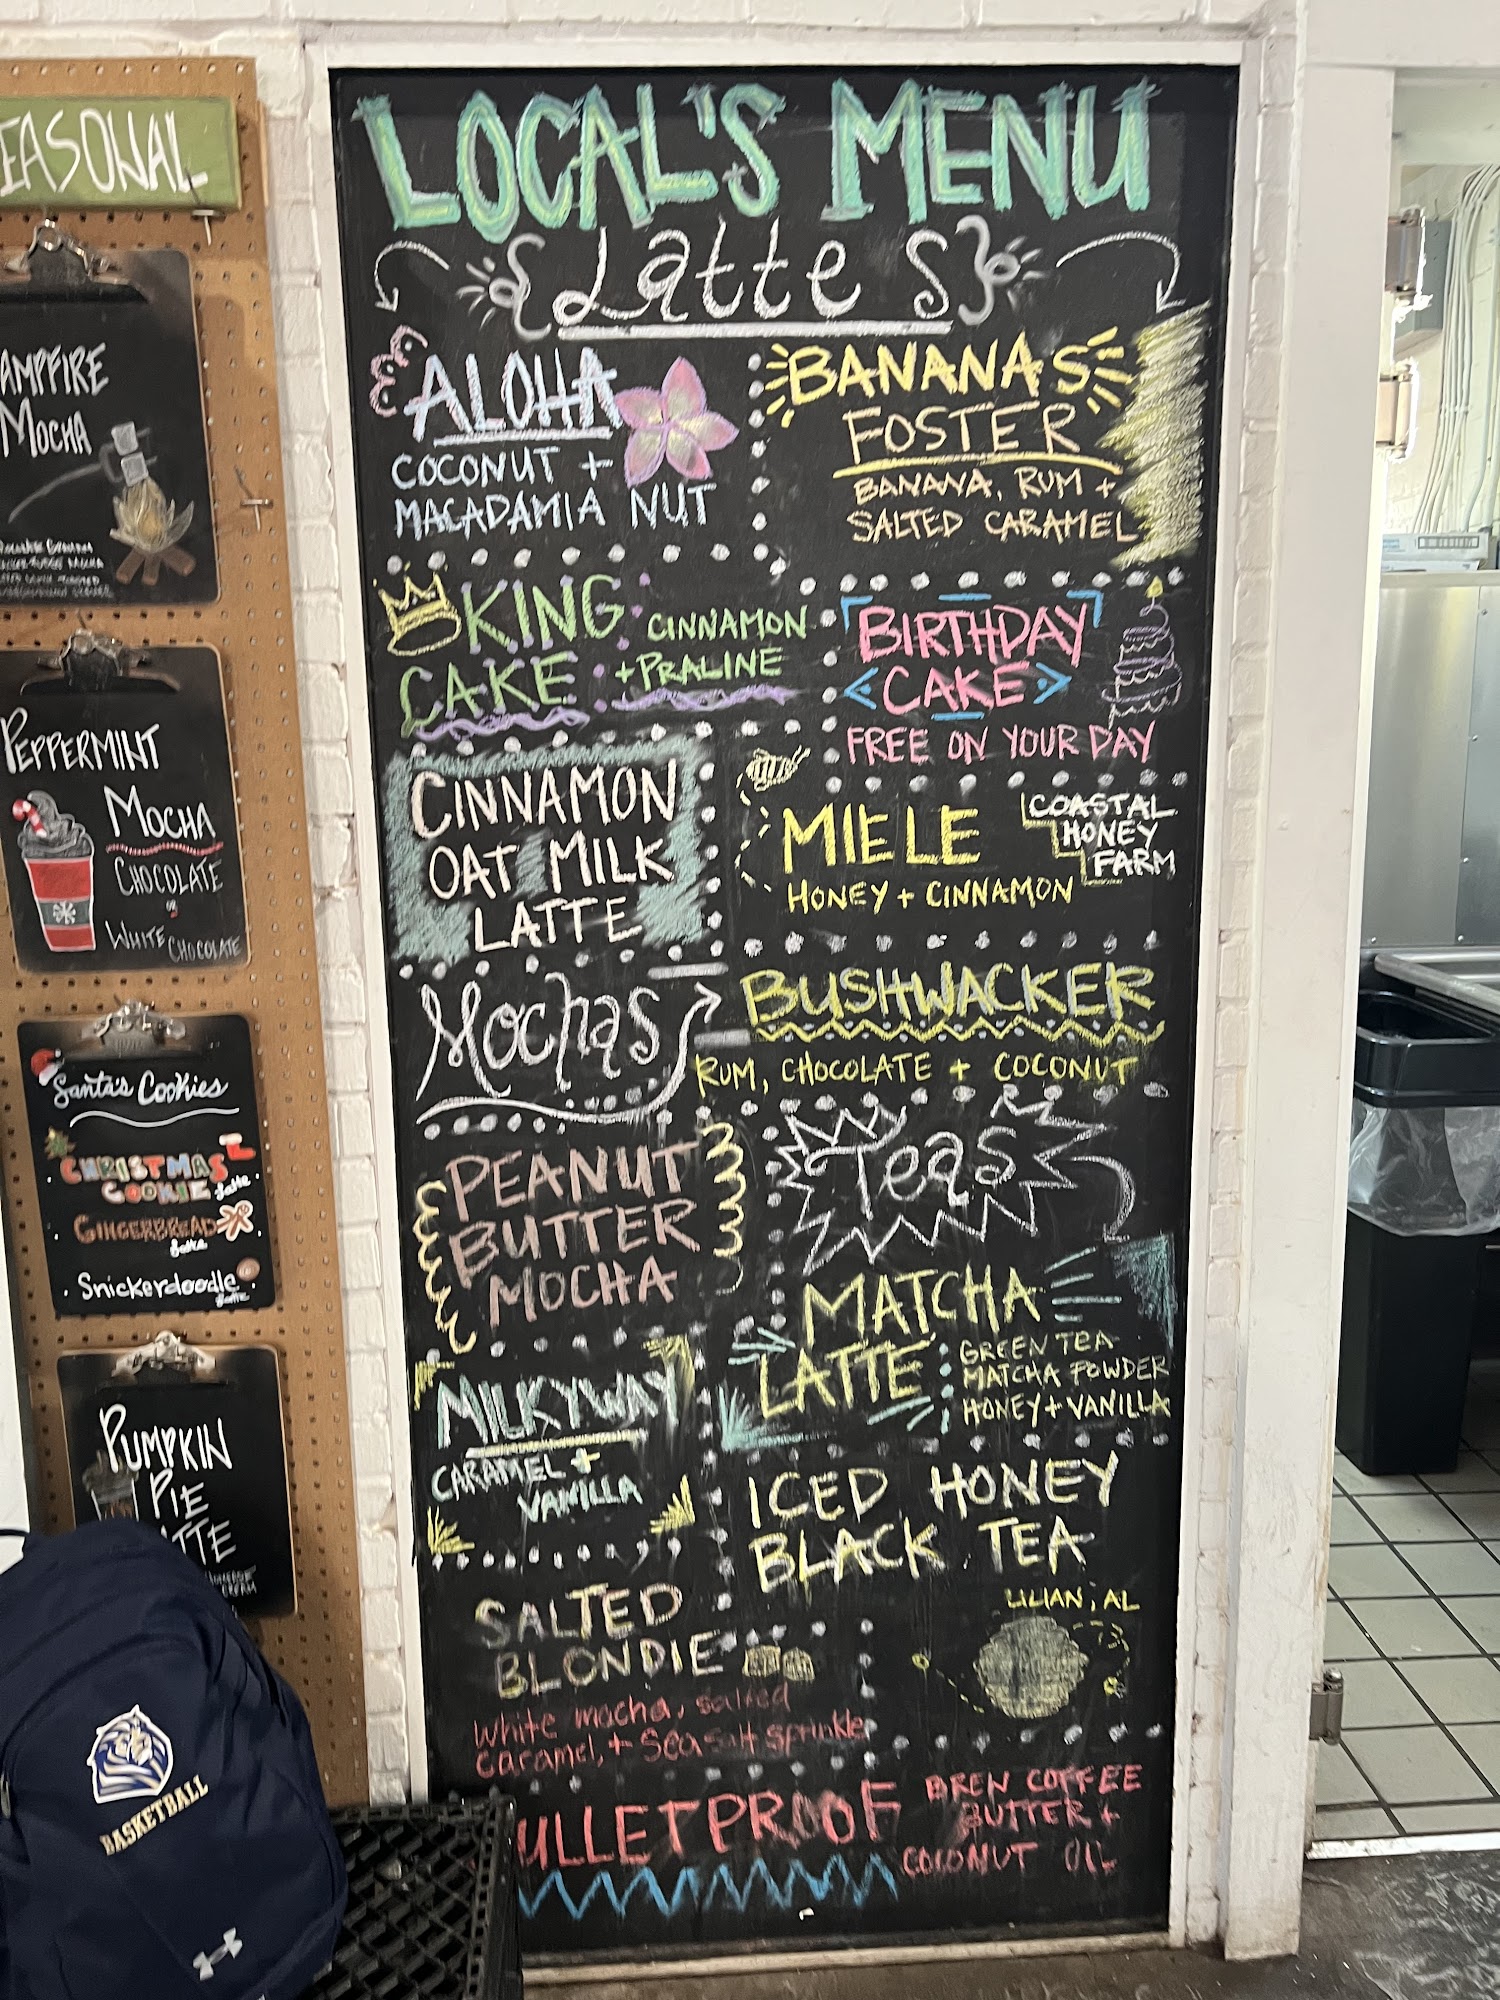 LOCAL'S MENU
{Latte S}
ALOHA
COCONUT +
MACADAMIA NUT
BANANAS
FOSTER
BANANA, RUM +
SALTED CARAMEL
KING
CAKE
CINNAMON
+ PRALINE
BIRTHDAY
<CAKE>
FREE ON YOUR DAY
CINNAMON
OAT MILK
LATTE
MIELE
HONEY + CINNAMON
COASTAL
HONEY
FARM
Mochas
BUSHWACKER
RUM, CHOCOLATE + COCONUT
PEANUT
BUTTER
MOCHA
Teas
MATCHA
LATTE
GREEN TEA
MATCHA POWDER
HONEY + VANILLA
MILKYWAY
CARAMEL +
VANILLA
ICED HONEY
BLACK TEA
LILIAN, AL
SALTED
BLONDIE
white mocha, salted
caramel, + Sea salt sprinkle
ULLETPROOF
BREW COFFEE
BUTTER +
COCONUT OIL
EASONAL
AMPFIRE
MOCHA
PEPPERMINT
MOCHA
CHOCOLATE
OR
WHITE CHOCOLATE
Santa's Cookies
CHRISTMAS
COOKIE latte
GINGERBREAD
latte
Snickerdoodle
latte
PUMPKIN
PIE
TTE
BASKETBALL